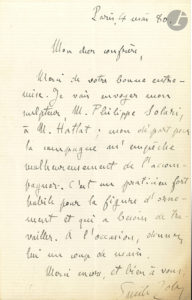 Paris 4 mai 80.
Mon cher confrère,
Merci de votre bonne entre-
mise. Je vais envoyer mon
sculpteur, M. Philippe Solari,
à M. Hattat ; mon départ pour
la campagne m'empêche
malheureusement de l'accom-
pagner. C'est un praticien fort
habile pour la figure d'orne-
ment et qui a besoin de tra-
vailler. A l'occasion, donnez-
lui un coup de main.
Merci encore, et bien à vous
Emile Zola